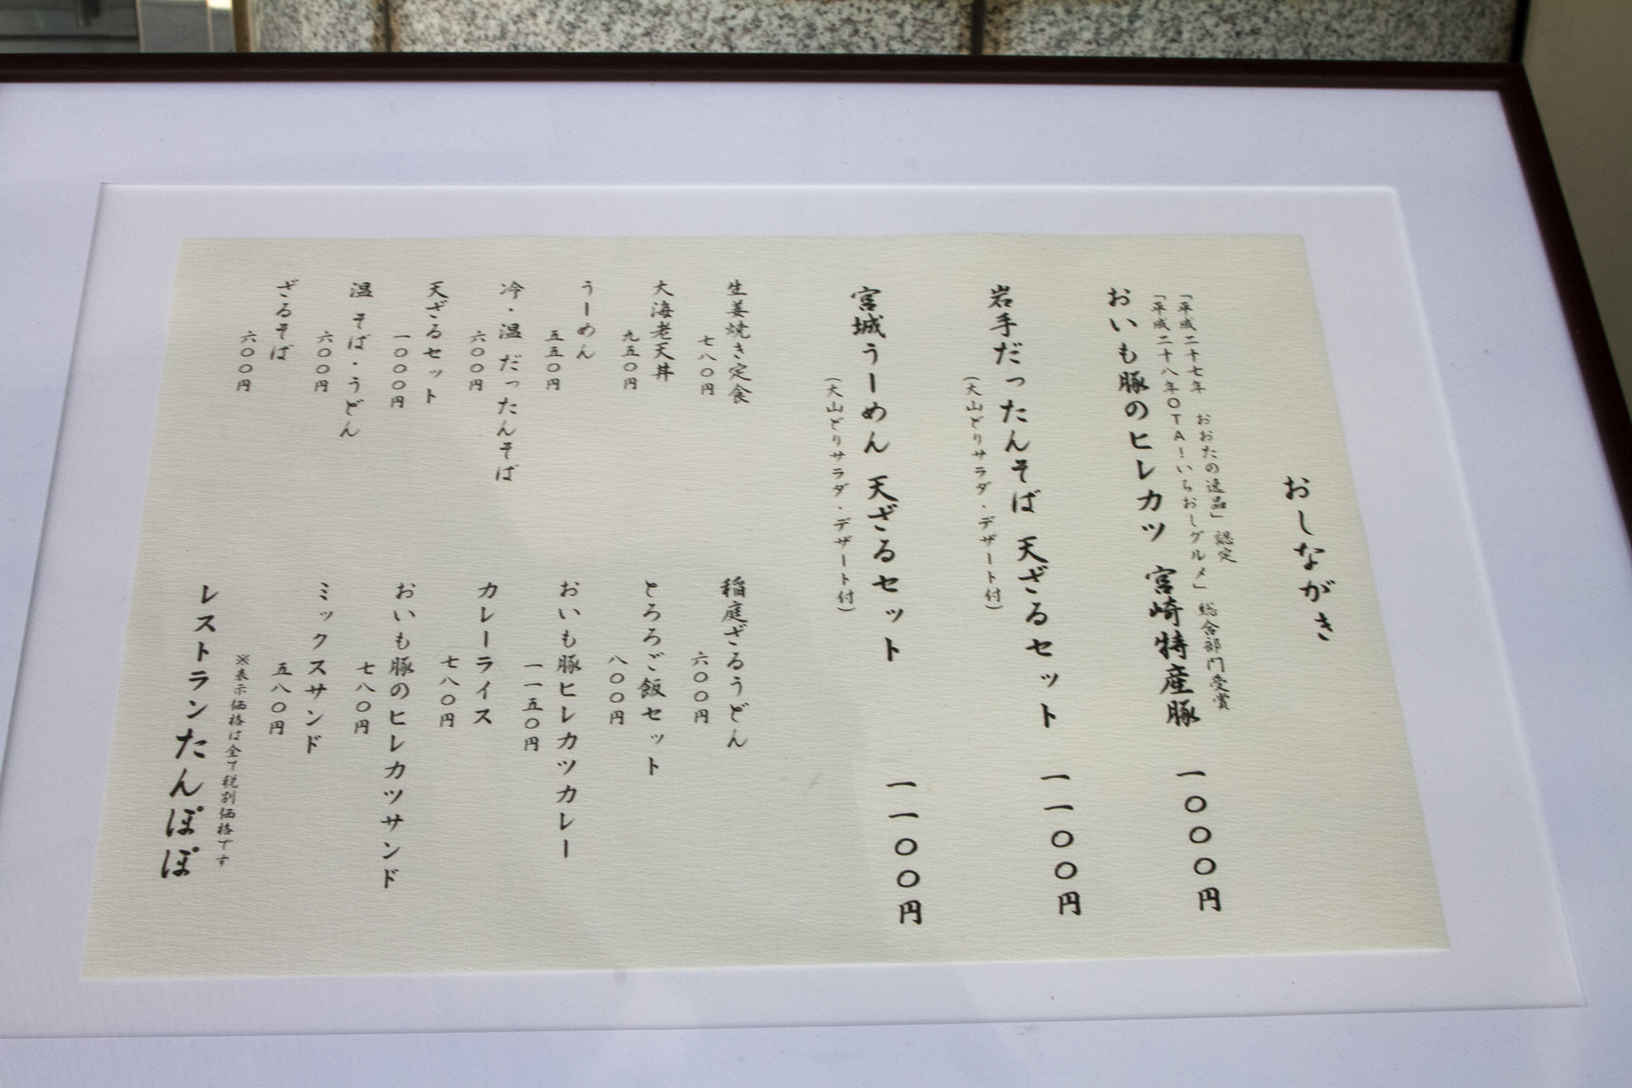 おしながき
「平成二十七年 おおたの逸品」認定
「平成二十八年OTA!いちおしグルメ」総合部門受賞
おいも豚のヒレカツ 宮崎特産豚 一〇〇〇円
岩手だったんそば 天ざるセット 一一〇〇円
(大山どりサラダ・デザート付)
宮城うーめん 天ざるセット 一一〇〇円
(大山どりサラダ・デザート付)
生姜焼き定食
七八〇円
大海老天丼
九五〇円
うーめん
五五〇円
冷・温 だったんそば
六〇〇円
天ざるセット
一〇〇〇円
温 そば・うどん
六〇〇円
ざるそば
六〇〇円
稲庭ざるうどん
六〇〇円
とろろご飯セット
八〇〇円
おいも豚ヒレカツカレー
一一五〇円
カレーライス
七八〇円
おいも豚のヒレカツサンド
七八〇円
ミックスサンド
五八〇円
※表示価格は全て税別価格です
レストランたんぽぽ